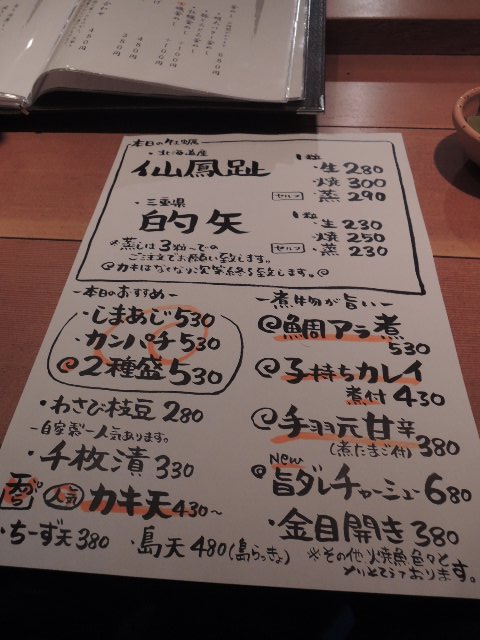 本日の牡蠣
・北海道産
仙鳳趾
1粒
・生 280
・焼 300
セルフ
・蒸 290
・三重県
的矢
1粒
・生 230
・焼 250
セルフ
・蒸 230
※蒸しは3粒〜での
ご注文でお願い致します。
@カキはなくなり次第終了致します。@
－本日のおすすめ－
・しまあじ 530
・カンパチ 530
@2種盛 530
・わさび枝豆 280
－自家製－人気あります。
・千枚漬 330
人気
カキ天 430〜
・ちーず天 380
・島天 480 (島らっきょ)
－煮物が旨い－
@鯛アラ煮
530
@子持ちカレイ
煮付 430
@手羽元甘辛
(煮たまご付) 380
New
@旨ダレチャーシュー 680
・金目開き 380
※その他、焼魚色々と
そりそろえております。